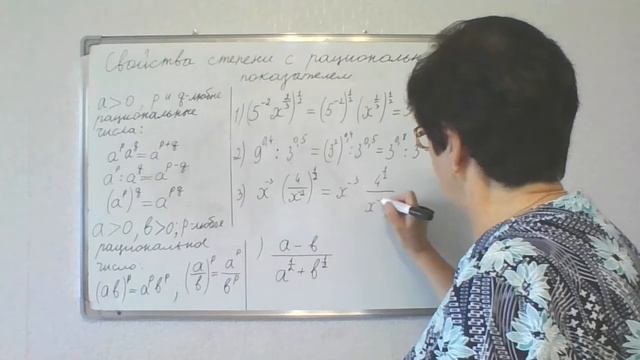 Свойства степени с рациональн
показателем
a>0, p и q-любые
рациональные
числа:
a^p a^q = a^{p+q}
a^p : a^q = a^{p-q}
(a^p)^q = a^{pq}
a>0, b>0; p-любое
рациональное
число.
(ab)^p = a^p b^p, (a/b)^p = a^p/b^p
1) (5^{-2} x^{2/3})^{1/2} = (5^{-2})^{1/2} (x^{2/3})^{1/2} =
2) 9^{0,4} : 3^{0,5} = (3^2)^{0,4} : 3^{0,5} = 3^{0,8} : 3
3) x^{-3} (4/x^2)^{1/2} = x^{-3} 4^{1/2}/x
) (a-b)/(a^{1/2}+b^{1/2})